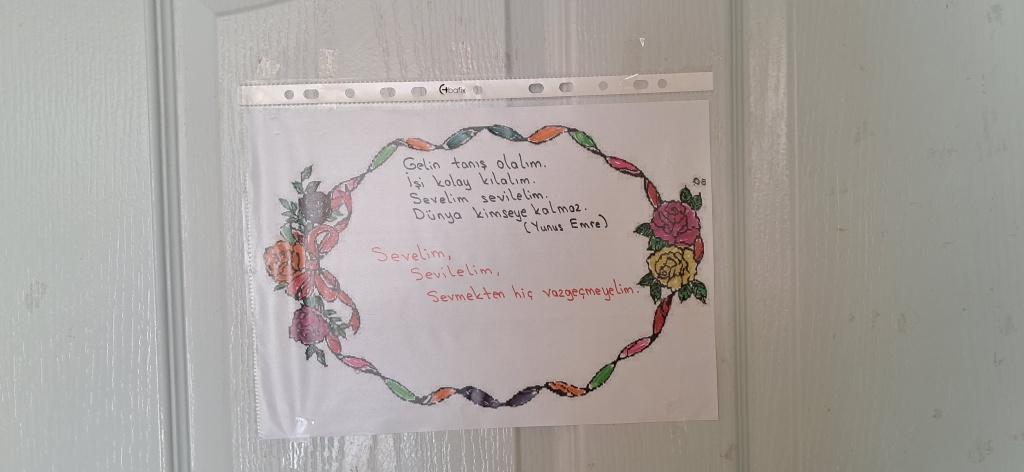 bafix
Gelin tanış olalım.
İşi kolay kılalım.
Sevelim sevilelim.
Dünya kimseye kalmaz.
(Yunus Emre)
Sevelim,
Sevilelim,
Sevmekten hiç vazgeçmeyelim.